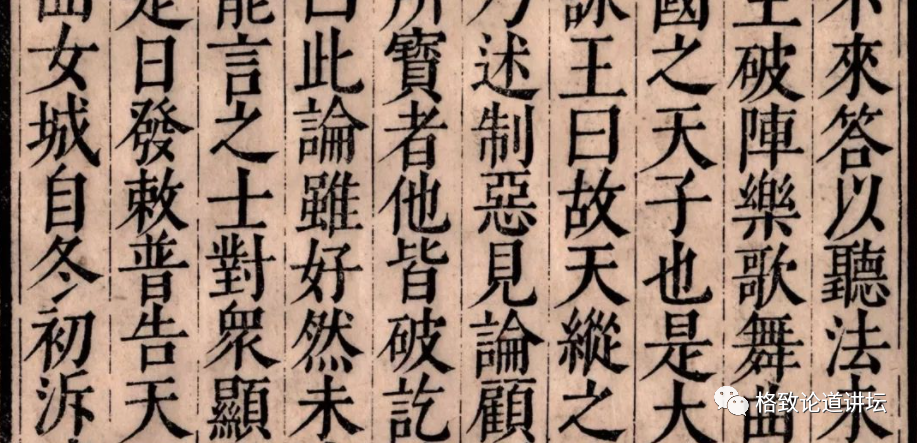 不來答以聽法未
王破陣樂歌舞曲
國之天子也是大
詠王曰故天縱之
乃述制惡見論顧
所寶者他皆破訖
曰此論雖好然未
能言之士對衆顯
是日發敕普告天
曲女城自冬初泝
格致论道讲坛